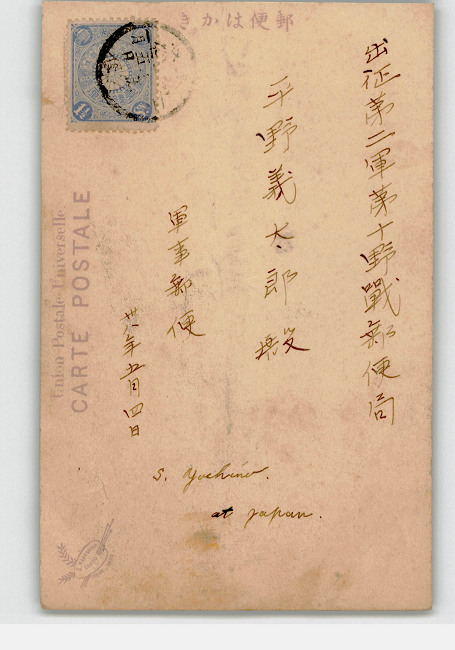 きかは便郵
出征第二軍第十野戰郵便局
平野義太郎殿
軍事郵便
卅八年五月四日
Union Postale Universelle
CARTE POSTALE
1½ Sn
S. Yochino.
at japan.